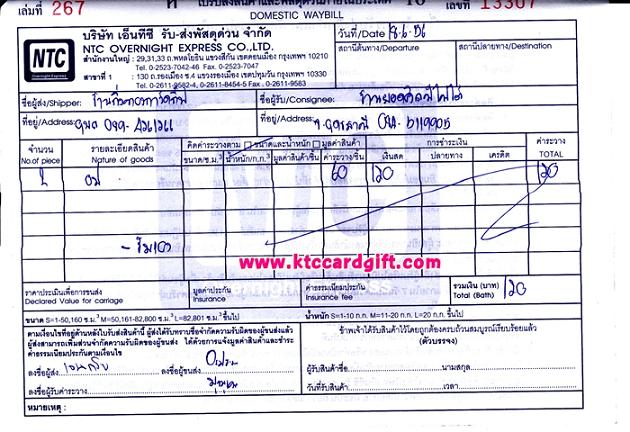 เล่มที่ 267 ใบรับส่งสินค้าและพัสดุด่วนภายในประเทศ เลขที่ 13307
DOMESTIC WAYBILL
NTC
Overnight Express
บริษัท เอ็นทีซี รับ-ส่งพัสดุด่วน จำกัด
NTC OVERNIGHT EXPRESS CO.,LTD.
สำนักงานใหญ่ : 29,31,33 ถ.พหลโยธิน แขวงสีกัน เขตดอนเมือง กรุงเทพฯ 10210
Tel. 0-2523-7042-46 Fax. 0-2523-7047
สาขาที่ 1 : 130 ถ.รองเมือง ซ.4 แขวงรองเมือง เขตปทุมวัน กรุงเทพฯ 10330
Tel. 0-2611-9582-4, 0-2611-8454-5 Fax. 0-2611-9583
วันที่/Date 18.6.56
สถานีต้นทาง/Departure สถานีปลายทาง/Destination
ชื่อผู้ส่ง/Shipper:
ชื่อผู้รับ/Consignee:
ที่อยู่/Address:
ที่อยู่/Address:
จำนวน No.of piece
รายละเอียดสินค้า Nature of goods
คิดค่าระวางตาม ขนาดและน้ำหนัก มูลค่าสินค้า
ขนาด/ซ.ม.³ น้ำหนัก/ก.ก. มูลค่าสินค้า/ชิ้น ค่าระวาง/ชิ้น
การชำระเงิน
เงินสด ปลายทาง เครดิต
ค่าระวาง TOTAL
2 60 120 120
www.ktccardgift.com
ราคาประเมินเพื่อการขนส่ง
Declared Value for carriage
มูลค่าประกัน
Insurance
ค่าธรรมเนียมประกัน
Insurance fee
รวมเงิน (บาท)
Total (Bath) 120
ขนาด S=1-50,160 ซ.ม.³ M=50,161-82,800 ซ.ม.³ L=82,801 ซ.ม.³ขึ้นไป น้ำหนัก S=1-10 ก.ก. M=11-20 ก.ก. L=20 ก.ก. ขึ้นไป
ตามเงื่อนไขที่อยู่ด้านหลังใบรับส่งสินค้านี้ ผู้ส่งได้รับทราบข้อจำกัดความรับผิดของผู้ขนส่งแล้ว
ผู้ส่งสามารถเพิ่มส่วนจำกัดความรับผิดของผู้ขนส่ง ได้ด้วยการแจ้งมูลค่าสินค้าและชำระ
ค่าธรรมเนียมประกันตามเงื่อนไข
ลงชื่อผู้ส่ง ลงชื่อผู้ขนส่ง
ลงชื่อผู้รับค่าระวาง
ข้าพเจ้าได้รับสินค้าไว้โดยถูกต้องครบถ้วนสมบูรณ์เรียบร้อยแล้ว
(ตัวบรรจง)
ผู้รับสินค้าชื่อ นามสกุล
วันที่รับสินค้า เวลา
หมายเหตุ :